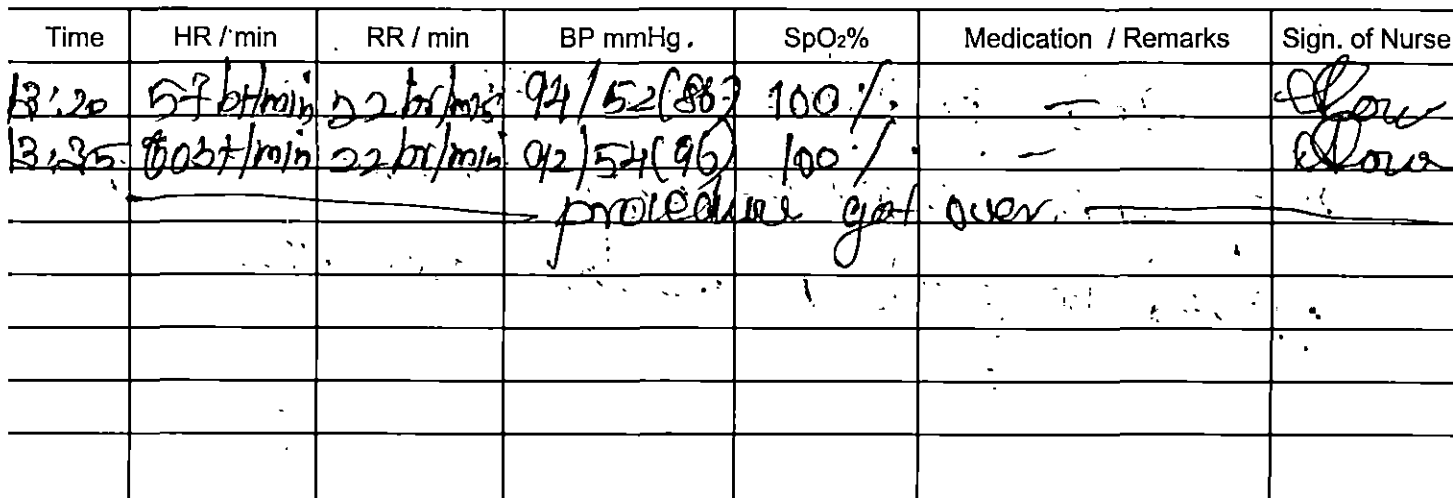 Time HR / min RR / min BP mmHg. SpO2% Medication / Remarks Sign. of Nurse
13:20 57 bt/min 22 br/min 94/52(88) 100% -
13:35 60bt/min 22 br/min 92/54(96) 100% -
procedure got over